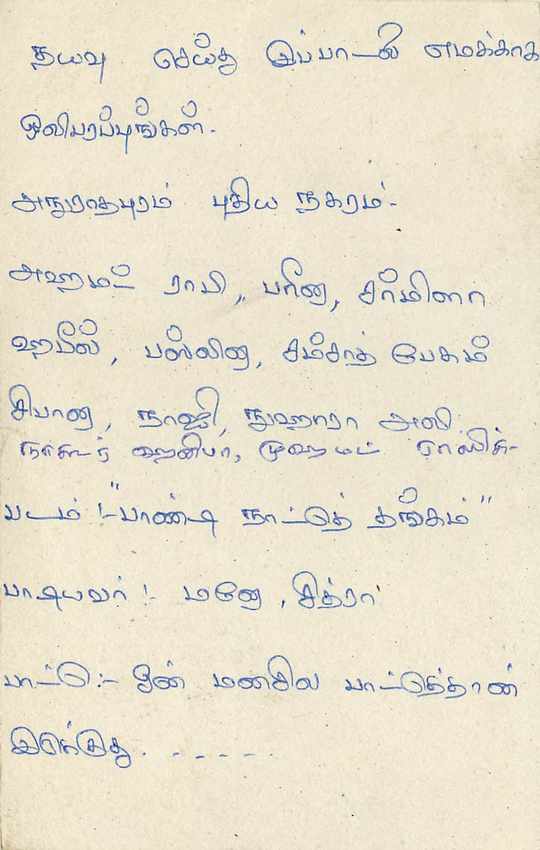 தயவு செய்து இப்பாடலை எமக்காக
ஒலிபரப்புங்கள்.
அநுராதபுரம் புதிய நகரம்.
அஹமட் ராபி, பரீனா, சர்மிளா
ஹபீஸ், பஸ்லினா, சம்சாத் பேகம்
சிபானா, நாஜி, நுஹாரா அலி
நாகூர் ஹனிபா, முஹமட் ராஸிக்.
படம் :- "பாண்டி நாட்டுத் தங்கம்"
பாடியவர் :- மனோ, சித்ரா
பாட்டு :- உன் மனசில பாட்டுத்தான்
இருக்குது . - - - - -